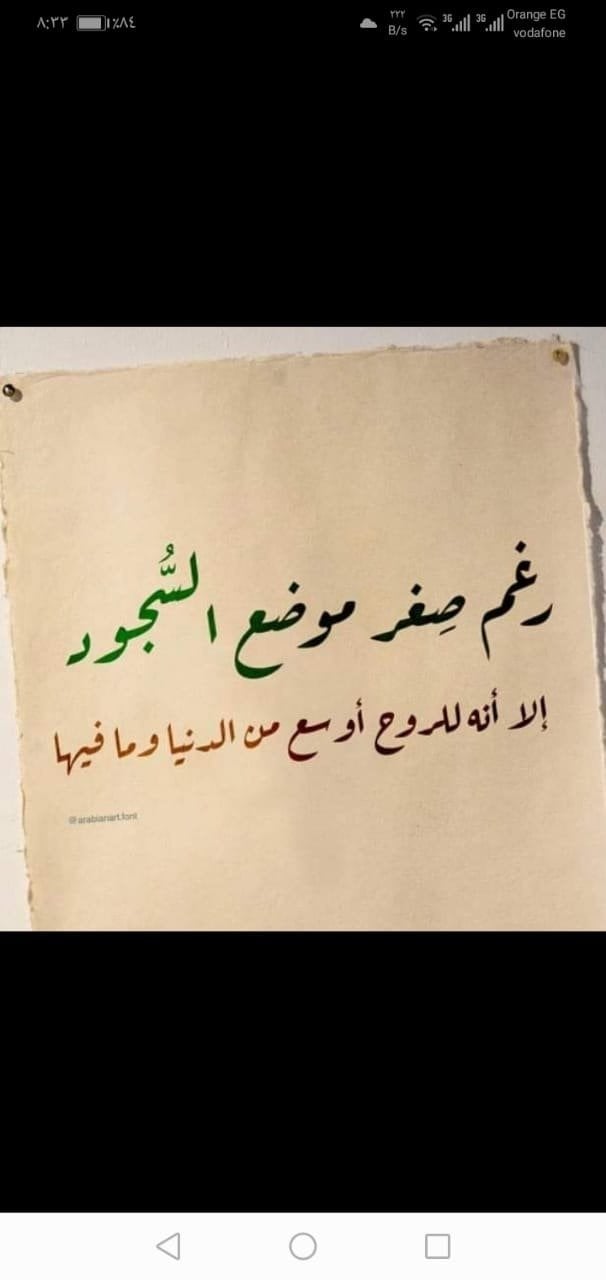 ٨:٣٣ ٪٨٤ ٢٢٢ B/s 3G 3G Orange EG vodafone
رغم صِغر موضع السُّجود
إلا أنه للروح أوسع من الدنيا وما فيها
@arabianart.font